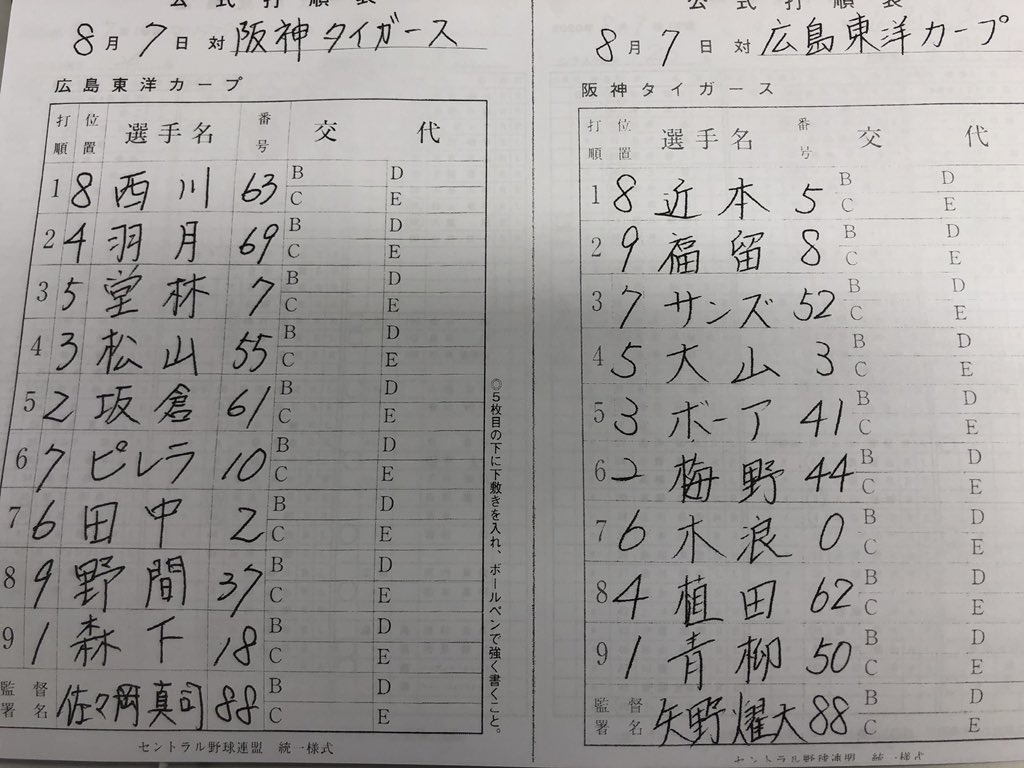 公式打順表
8月7日対 阪神タイガース
広島東洋カープ
打順 位置 選手名 番号 交代
1 8 西川 63 B C D E
2 4 羽月 69 B C D E
3 5 堂林 7 B C D E
4 3 松山 55 B C D E
5 2 坂倉 61 B C D E
6 7 ピレラ 10 B C D E
7 6 田中 2 B C D E
8 9 野間 37 B C D E
9 1 森下 18 B C D E
監督署名 佐々岡真司 88 B C D E
セントラル野球連盟 統一様式
◎5枚目の下に下敷きを入れ、ボールペンで強く書くこと。
公式打順表
8月7日対 広島東洋カープ
阪神タイガース
打順 位置 選手名 番号 交代
1 8 近本 5 B C D E
2 9 福留 8 B C D E
3 7 サンズ 52 B C D E
4 5 大山 3 B C D E
5 3 ボーア 41 B C D E
6 2 梅野 44 B C D E
7 6 木浪 0 B C D E
8 4 植田 62 B C D E
9 1 青柳 50 B C D E
監督署名 矢野燿大 88 B C D E
セントラル野球連盟 統一様式